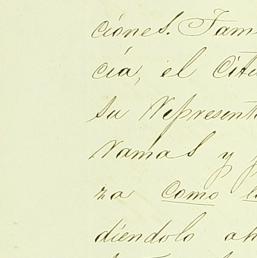 ciones. Fam
cia, el Cit
su Represent
Namas y
za como l
diéndolo ah